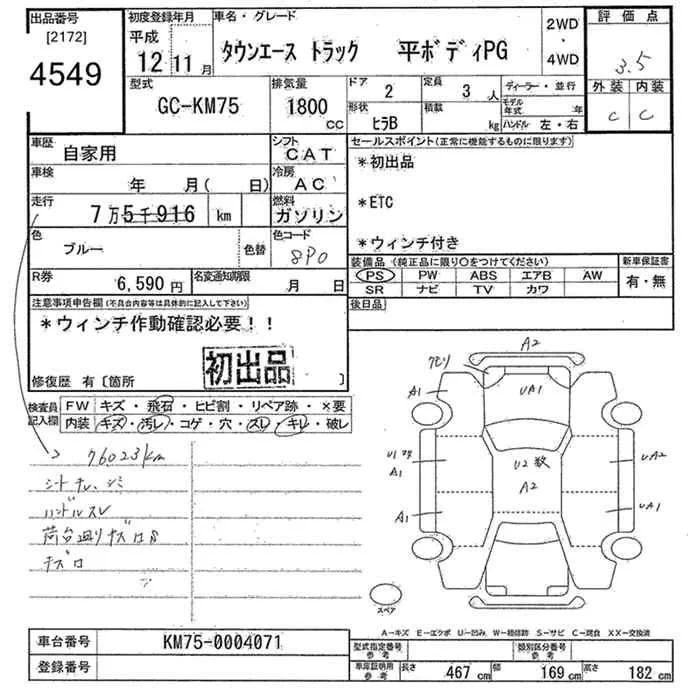 出品番号
[2172]
4549
初度登録年月
平成
12年11月
車名・グレード
タウンエース トラック 平ボディPG
2WD
・
4WD
評価点
3.5
外装 内装
C C
型式
GC-KM75
排気量
1800 CC
ドア
2
定員
3 人
形状
ヒラB
積載
kg
ディーラー・並行
モデル年式 年
ハンドル 左・右
車歴
自家用
シフト
CAT
車検
年 月( 日)
冷房
AC
走行
7万5千916 km
燃料
ガソリン
色
ブルー
色替
色コード
8P0
R券
6,590 円
名変通知期限
月 日
セールスポイント(正常に機能するものに限ります)
*初出品
*ETC
*ウィンチ付き
装備品 (純正品に限り○をつけてください)
PS PW ABS エアB AW
SR ナビ TV カワ
新車保証書
有・無
後日品
注意事項申告欄(不具合内容等は具体的に記入して下さい)
*ウィンチ作動確認必要!!
初出品
修復歴 有〔箇所 〕
検査員記入欄
FW キズ・飛石・ヒビ割・リペア跡・×要
内装 キズ・汚レ・コゲ・穴・スレ・キレ・破レ
76023km
シートキレ、シミ
ハンドルスレ
荷台廻りキズ
A2
A1
UA1
U2数
A2
A1
A1
UA2
UA1
スペア
A-キズ E-エクボ U-凹み W-補修跡 S-サビ C-腐食 XX-交換済
車台番号
KM75-0004071
登録番号
型式指定番号
参考
類別区分番号
参考
車庫証明用
参考
長さ 467 cm 幅 169 cm 高さ 182 cm